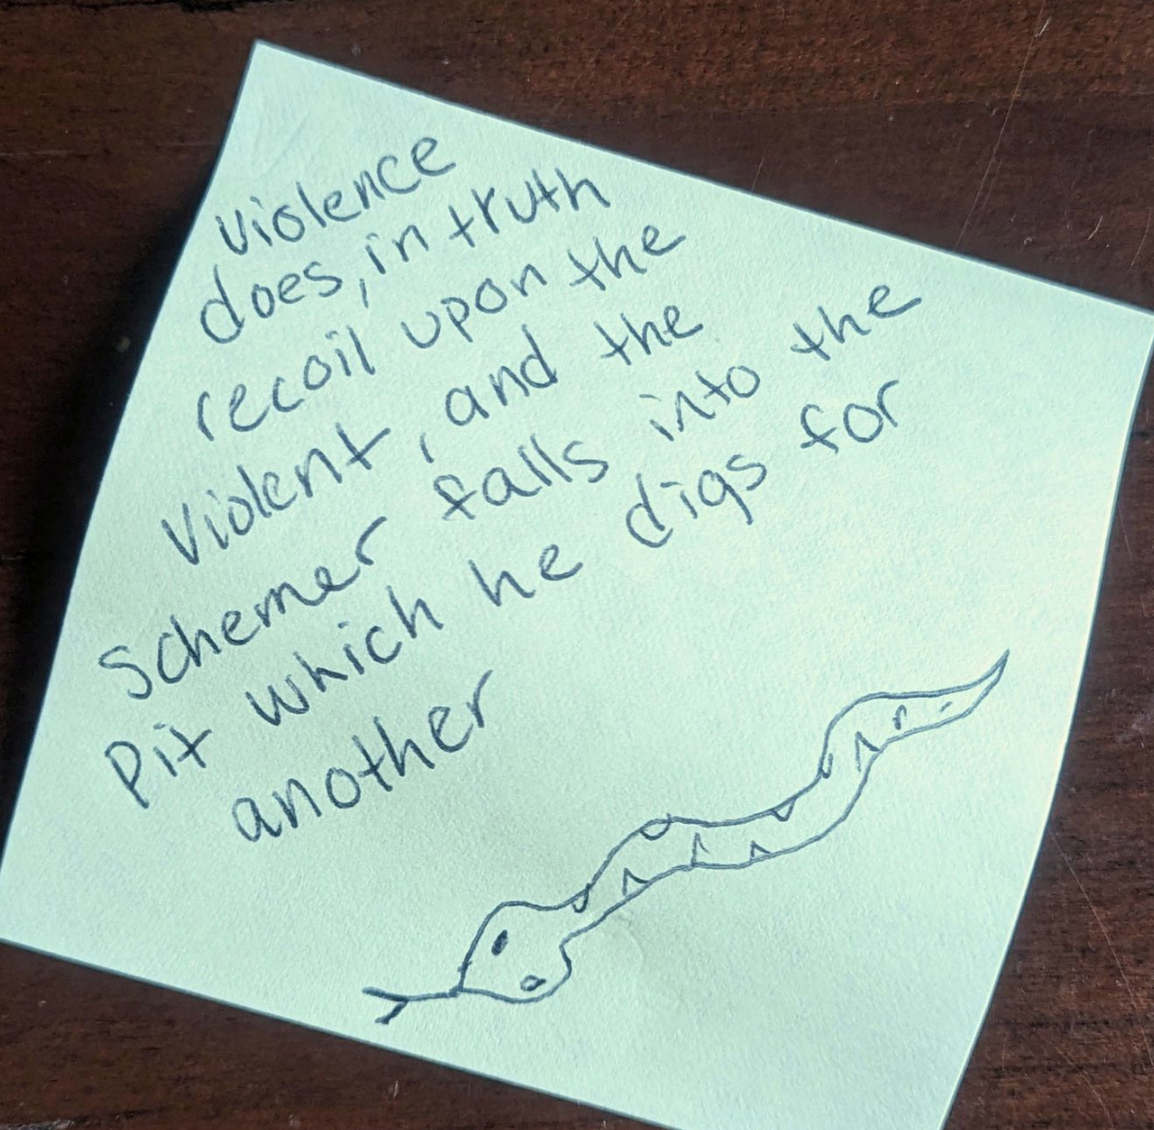 violence
does, in truth
recoil upon the
violent, and the
Schemer falls into the
Pit which he digs for
another